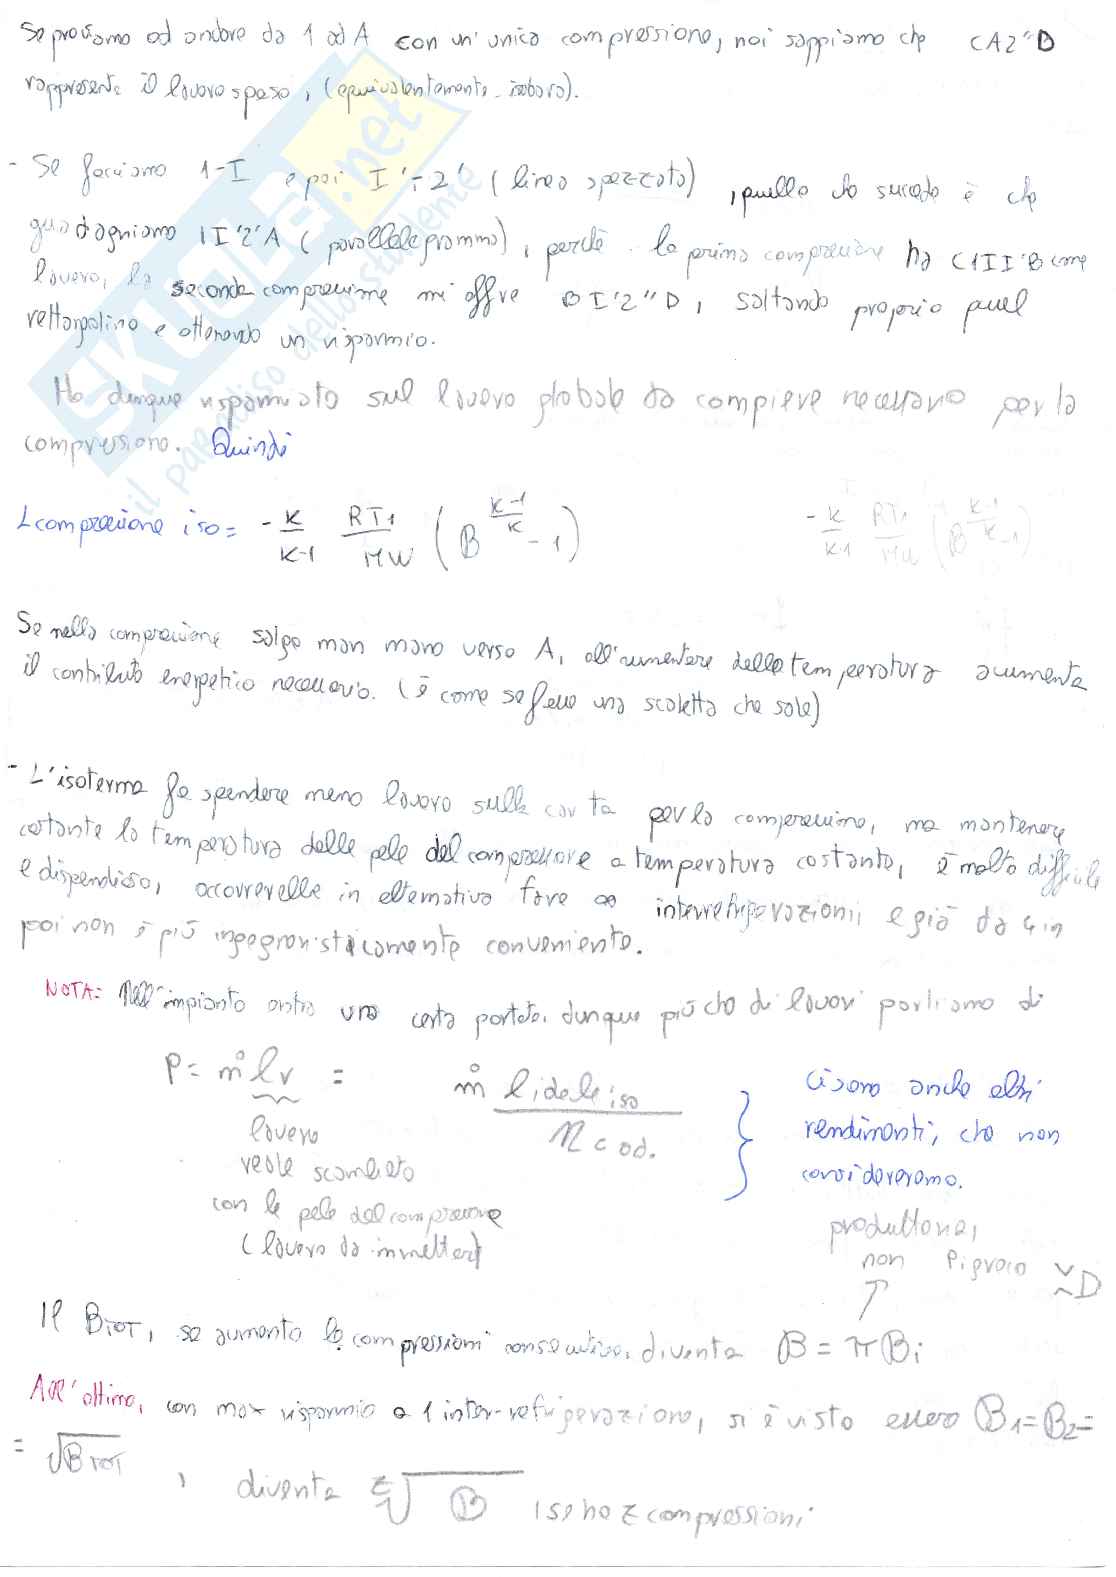 Se proviamo ad andare da 1 ad A con un'unica compressione, noi sappiamo che CA2"D
rappresenta il lavoro speso, (equivalentemente isobara).
- Se facciamo 1-I e poi I'-2' (linea spezzata), quello che succede è che
guadagniamo 1I'2'A (parallelogrammo), perché la prima compressione ha C1II'B come
lavoro, la seconda compressione mi offre BI'2"D, saltando proprio quel
rettangolino e ottenendo un risparmio.
Ho dunque risparmiato sul lavoro globale da compiere necessario per la
compressione. Quindi
L compressione iso = - K/K-1 RT1/MW (B^(K-1/K) - 1)
- K/K-1 RT1/MW (B^(K-1/K) - 1)
Se nella compressione salgo man mano verso A, all'aumentare della temperatura aumenta
il contributo energetico necessario. (è come se fosse una scaletta che sale)
- L'isoterma fa spendere meno lavoro sulla carta per la compressione, ma mantenere
costante la temperatura delle pale del compressore a temperatura costante, è molto difficile
e dispendioso, occorrerebbe in alternativa fare ∞ interrefrigerazioni e già da 4 in
poi non è più ingegneristicamente conveniente.
NOTA: Nell'impianto entra una certa portata, dunque più che di lavori parliamo di
P = ṁ lv = ṁ l ideale iso / η cod.
lavoro
reale scambiato
con le pale del compressore
(lavoro da immettere)
Ci sono anche altri
rendimenti, che non
considereremo.
produttoria,
non Pigreco
Il BTOT, se aumento le compressioni consecutive, diventa B = π Bi
All'ottimo, con max risparmio a 1 inter-refrigerazione, si è visto essere B1 = B2 =
= √BTOT , diventa ᶻ√B se ho z compressioni
SKUOLA.net
il paradiso dello studente